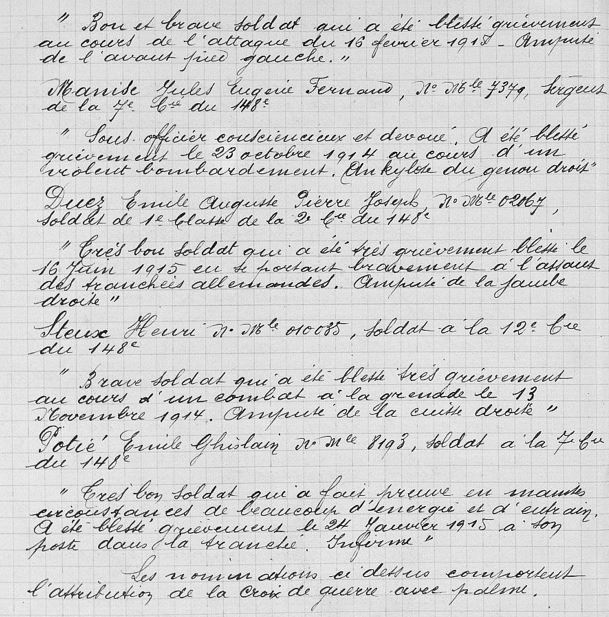 " Bon et brave soldat qui a été blessé grièvement
au cours de l'attaque du 16 février 1915 - Amputé
de l'avant pied gauche. "
Manise Jules Eugène Fernand, No Mle 7379, Sergent
de la 7e Cie du 148e
" Sous-officier consciencieux et dévoué. A été blessé
grièvement le 23 octobre 1914 au cours d'un
violent bombardement. Ankylose du genou droit "
Ducz Emile Auguste Pierre Joseph, No Mle 02067,
soldat de 1e Classe de la 2e Cie du 148e
" Très bon soldat qui a été très grièvement blessé le
16 Juin 1915 en se portant bravement à l'assaut
des tranchées allemandes. Amputé de la jambe
droite "
Steux Henri No Mle 010085, soldat à la 12e Cie
du 148e
" Brave soldat qui a été blessé très grièvement
au cours d'un combat à la grenade le 13
Novembre 1914. Amputé de la cuisse droite "
Potié Emile Ghislain No Mle 8193, soldat à la 7e Cie
du 148e
" Très bon soldat qui a fait preuve en maintes
circonstances de beaucoup d'énergie et d'entrain.
A été blessé grièvement le 24 Janvier 1915 à son
poste dans la tranchée. Infirme "
Les nominations ci dessus comportent
l'attribution de la Croix de guerre avec palme.